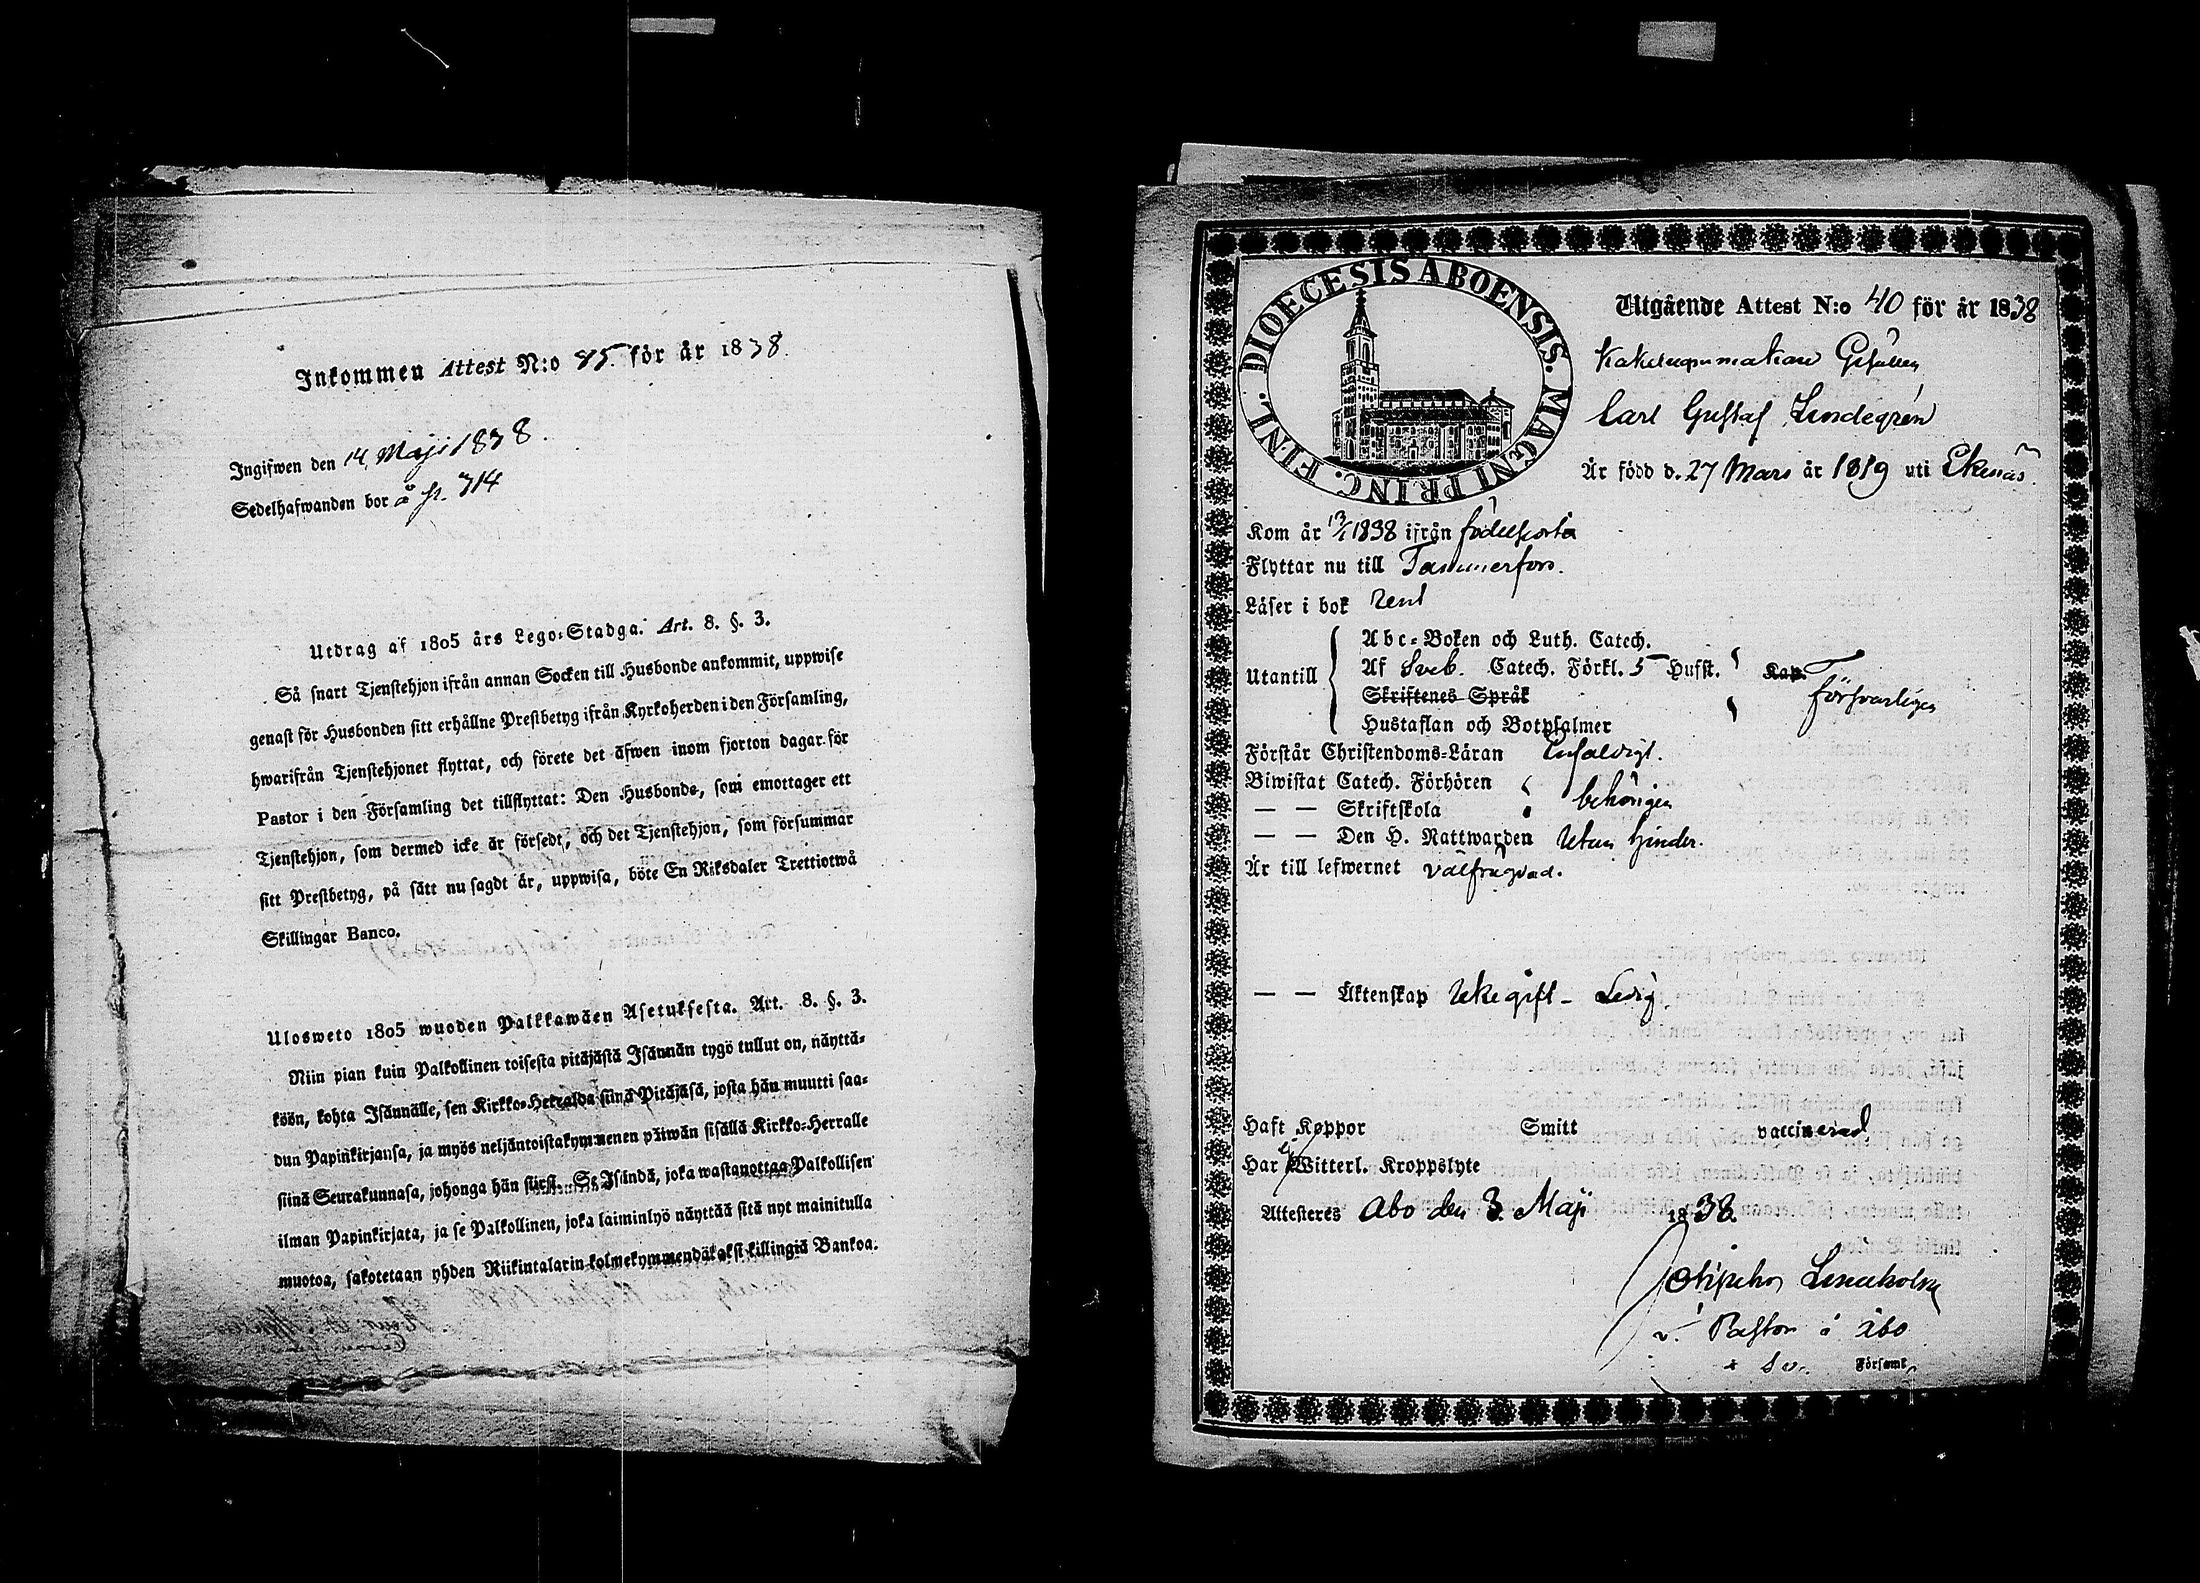 Inkommen Attest N:o 85. för år 1838.
Ingifwen den 14 Maji 1838.
Sedelhafwanden bor å N. 314
Utdrag af 1805 års Lego-Stadga. Art. 8. §. 3.
Så snart Tjenstehjon ifrån annan Socken till Husbonde ankommit, uppwise
genast för Husbonden sitt erhållne Prestbetyg ifrån Kyrkoherden i den Församling,
hwarifrån Tjenstehjonet flyttat, och förete det äfwen inom fjorton dagar för
Pastor i den Församling det tillflyttat: Den Husbonde, som emottager ett
Tjenstehjon, som dermed icke är försedt, och det Tjenstehjon, som försummar
sitt Prestbetyg, på sätt nu sagdt är, uppwisa, böte En Riksdaler Trettiotwå
Skillingar Banco.
Ulosweto 1805 wuoden Palkkawäen Asetuksesta. Art. 8. §. 3.
Niin pian kuin Palkollinen toisesta pitäjästä Isännän tygö tullut on, näyttä-
köön, kohta Isännälle, sen Kirkko-Herralda siinä Pitäjäsä, josta hän muutti saa-
dun Papinkirjansa, ja myös neljäntoistakymmenen päiwän sisällä Kirkko-Herralle
siinä Seurakunnasa, johonga hän siirsi. Se Isändä, joka wastanottaa Palkollisen
ilman Papinkirjata, ja se Palkollinen, joka laiminlyö näyttää sitä nyt mainitulla
muotoa, sakotetaan yhden Riikintalarin kolmekymmendäkaksi killingiä Bankoa.
DIOECESIS ABOENSIS. MAGNI PRINC. FINL.
Utgående Attest N:o 40 för år 1838
Kakelugnsmakare Gesällen
Carl Gustaf Lindegrén
Är född d. 27 Mars år 1819 uti Ekenäs.
Kom år 13/1 1838 ifrån födelseorta
Flyttar nu till Tammerfors.
Läser i bok rent
Utantill
Abc-Boken och Luth. Catech.
Af Sveb. Catech. Förkl. 5 Hufst. Kap.
Skriftenes Språk
försvarligen
Hustaflan och Botpsalmer
Förstår Christendoms-Läran Enfaldigt.
Biwistat Catech. Förhören
— — Skriftskola
behörigen
— — Den H. Nattwarden Utan hinder.
Är till lefwernet välfrägdad.
— — Äktenskap Icke gift - Ledig.
Haft Koppor Smitt vaccinerad
Har Witterl. Kroppslyte
Attesteres Åbo den 3. Maji 1838.
v. Pastor i Åbo
Sv. Församl.